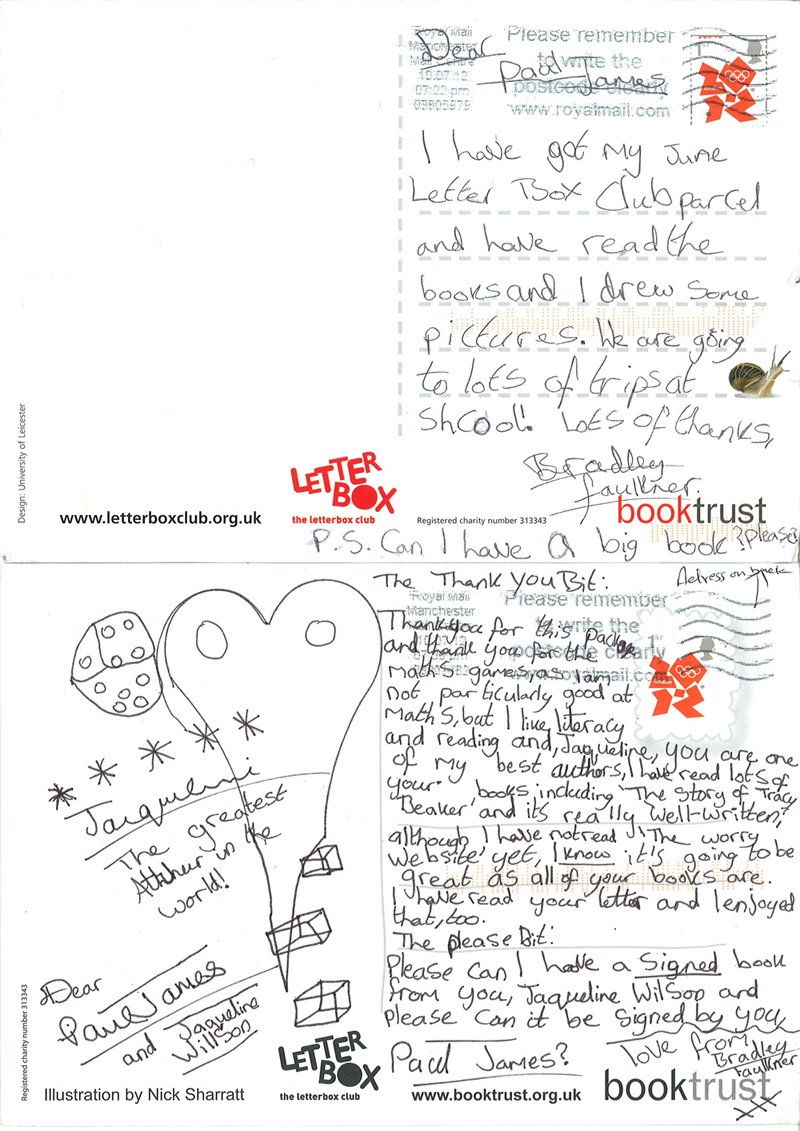 Royal Mail
Manchester
Mail Centre
10.07.12
07:22 pm
03805878
Please remember
to write the
postcode clearly
www.royalmail.com
1st
Dear
Paul James
I have got my June
Letter Box Club parcel
and have read the
books and I drew some
pictures. We are going
to lots of trips at
Shcool! Lots of thanks,
Bradley
faulkner.
Design: University of Leicester
www.letterboxclub.org.uk
LETTER
BOX
the letterbox club
Registered charity number 313343
booktrust
P.S. Can I have a big book? please?
The Thank You Bit:
Adress on back
Royal Mail
Manchester
Please remember
to write the
postcode clearly
www.royalmail.com
1st
Thank you for this package
and thank you for the
maths games, as I am
not particularly good at
maths, but I like literacy
and reading and, Jaqueline, you are one
of my best authors, I have read lots of
your books including 'The Story of Tracy
Beaker' and its really well-written,
although I have not read 'The worry
website' yet, I know it's going to be
great as all of your books are.
I have read your letter and I enjoyed
that, too.
The please Bit:
Please can I have a signed book
from you, Jaqueline Wilson and
please can it be signed by you,
Paul James?
love from
Bradley
faulkner
xxx
Jacqueline
The greatest
in the
world!
Dear
Paul James
and Jaqueline
Willson
Registered charity number 313343
Illustration by Nick Sharratt
LETTER
BOX
the letterbox club
www.booktrust.org.uk
booktrust